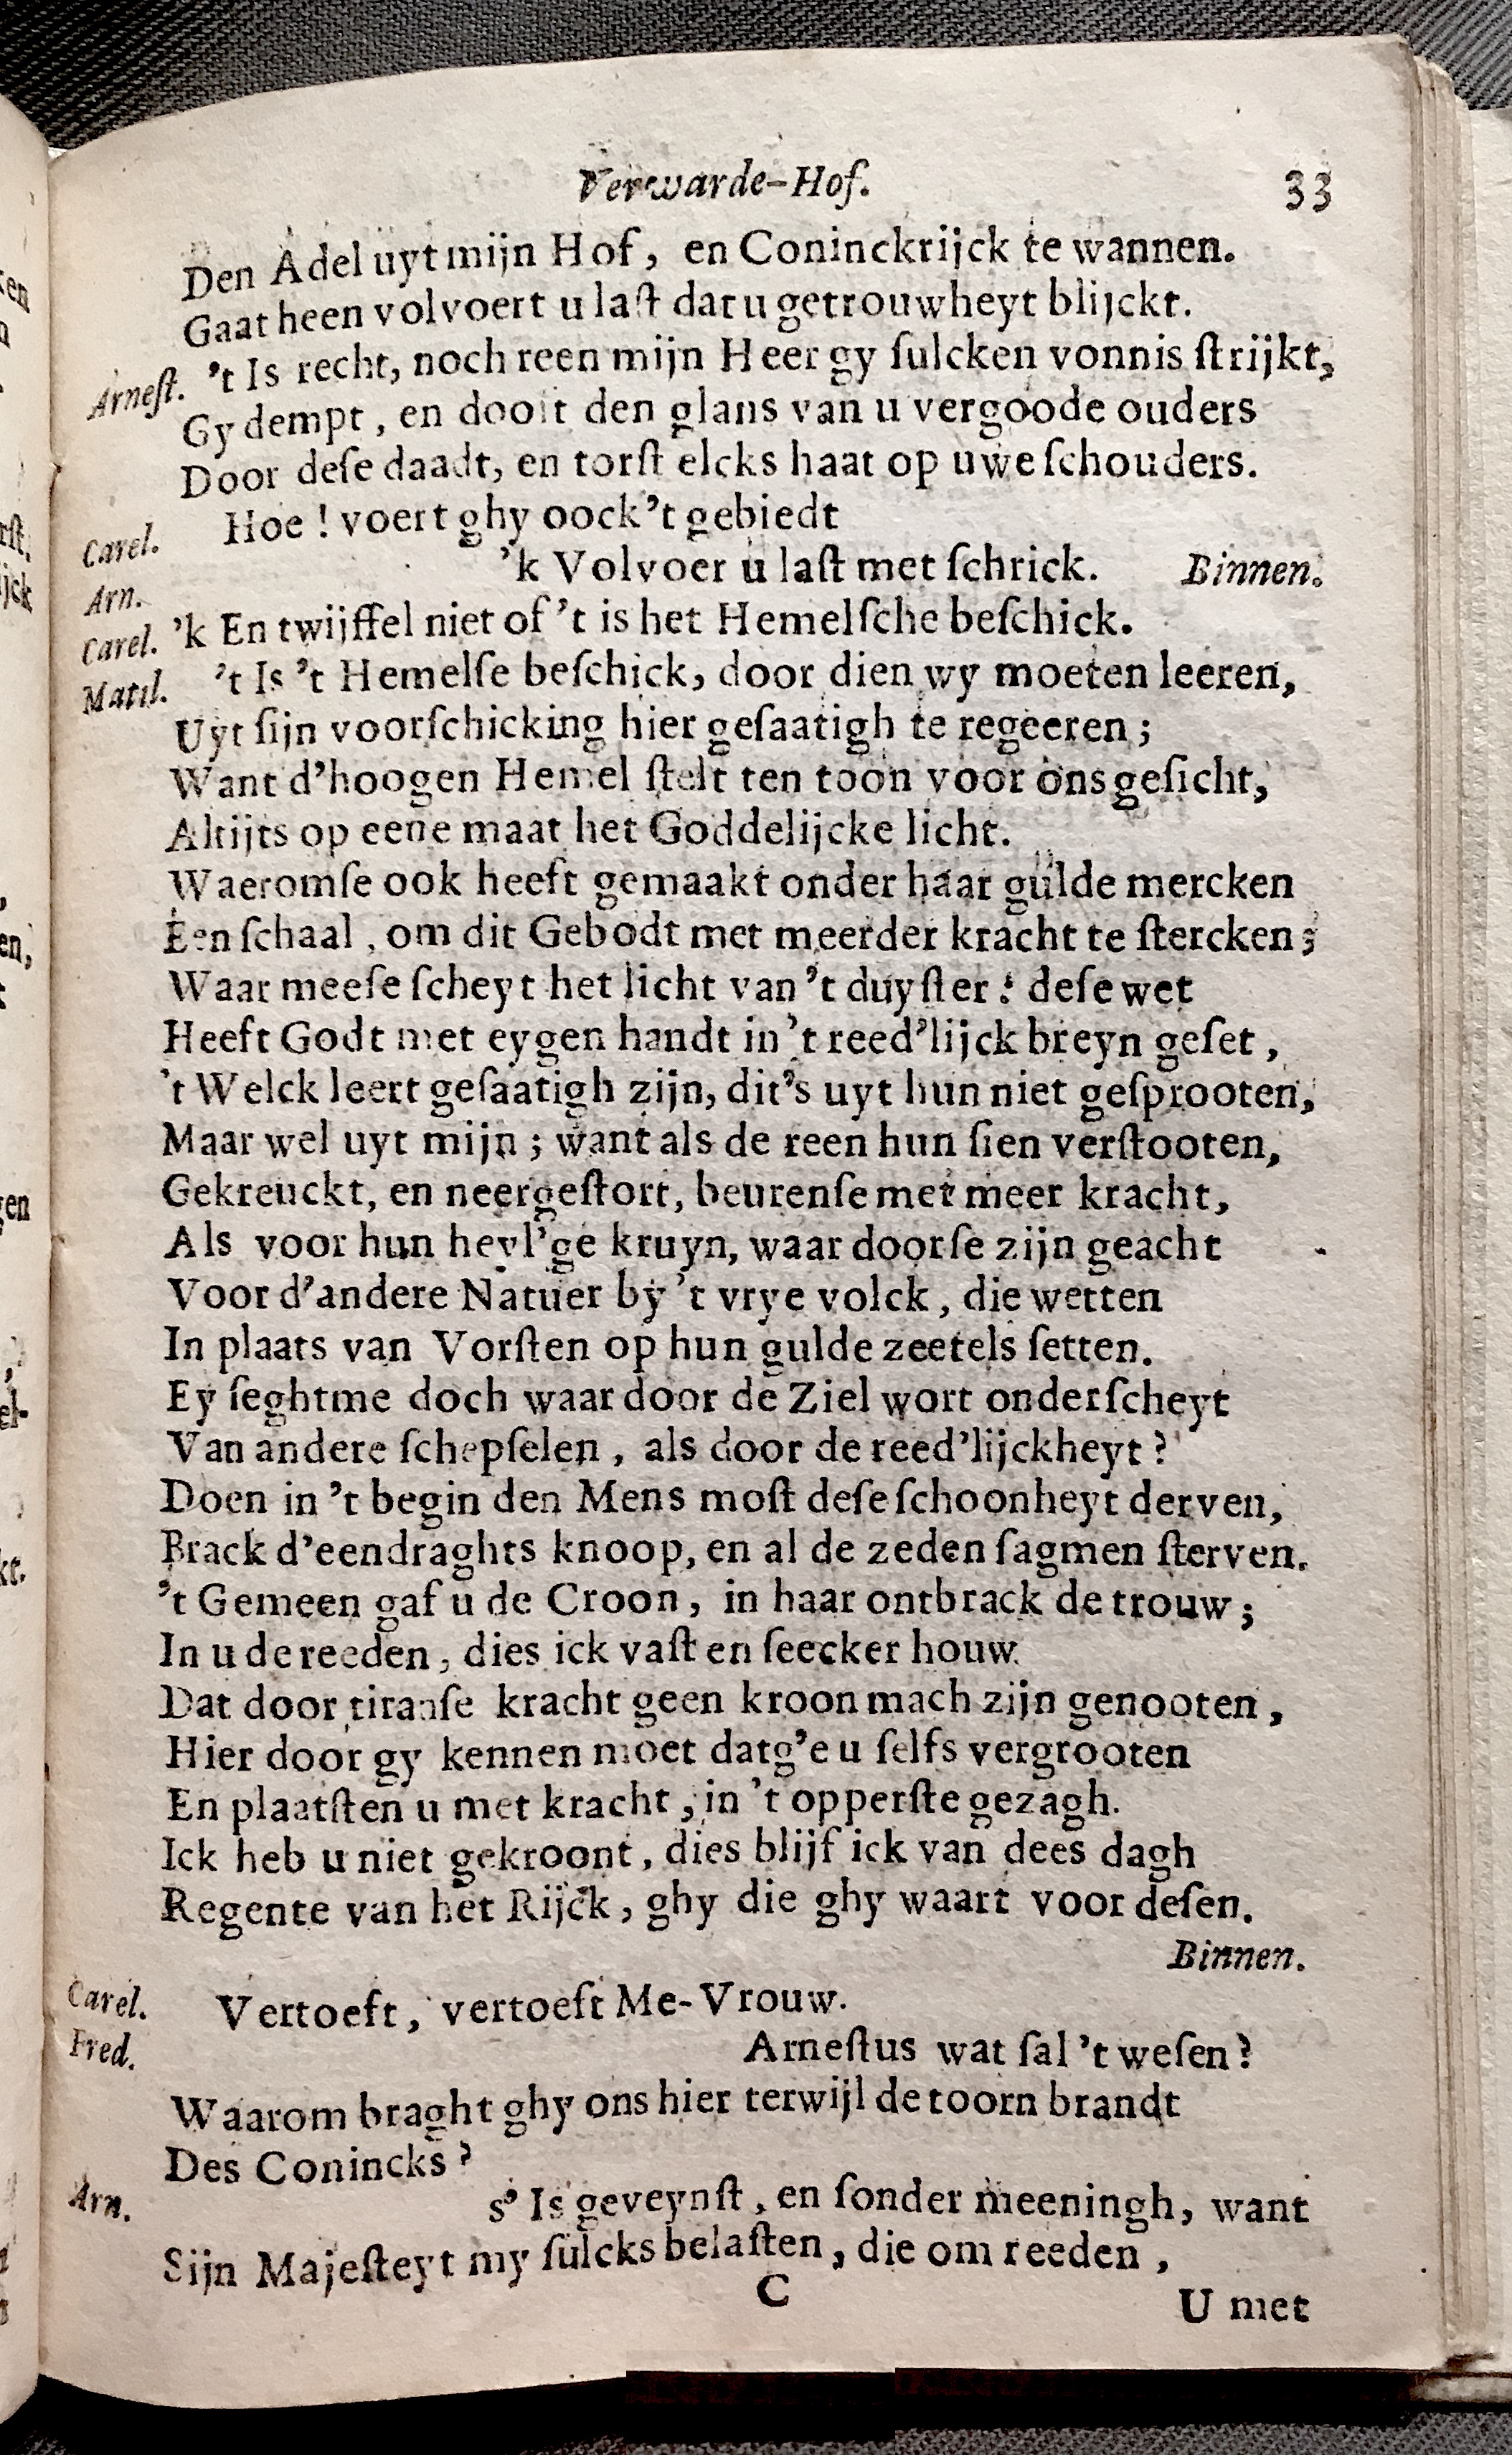 Verwarde-Hof. 33
Den Adel uyt mijn Hof, en Coninckrijck te wannen.
Gaat heen volvoert u laſt dat u getrouwheyt blijckt.
Arneſt. 't Is recht, noch reen mijn Heer gy ſulcken vonnis ſtrijkt,
Gy dempt, en dooft den glans van u vergoode ouders
Door deſe daadt, en torſt elcks haat op uwe ſchouders.
Carel. Hoe! voert ghy oock 't gebiedt
Arn. 'k Volvoer u laſt met ſchrick. Binnen.
Carel. 'k En twijffel niet of 't is het Hemelſche beſchick.
Matil. 't Is 't Hemelſe beſchick, door dien wy moeten leeren,
Uyt ſijn voorſchicking hier geſaatigh te regeeren;
Want d'hoogen Hemel ſtelt ten toon voor ons geſicht,
Altijts op eene maat het Goddelijcke licht.
Waeromſe ook heeft gemaakt onder haar gulde mercken
Een ſchaal, om dit Gebodt met meerder kracht te ſtercken;
Waar meeſe ſcheyt het licht van 't duyſter: deſe wet
Heeft Godt met eygen handt in 't reed'lijck breyn geſet,
't Welck leert geſaatigh zijn, dit's uyt hun niet geſprooten,
Maar wel uyt mijn; want als de reen hun ſien verſtooten,
Gekreuckt, en neergeſtort, beurenſe met meer kracht,
Als voor hun heyl'ge kruyn, waar doorſe zijn geacht
Voor d'andere Natuer by 't vrye volck, die wetten
In plaats van Vorſten op hun gulde zeetels ſetten.
Ey ſeghtme doch waar door de Ziel wort onderſcheyt
Van andere ſchepſelen, als door de reed'lijckheyt?
Doen in 't begin den Mens moſt deſe ſchoonheyt derven,
Brack d'eendraghts knoop, en al de zeden ſagmen ſterven.
't Gemeen gaf u de Croon, in haar ontbrack de trouw;
In u de reeden, dies ick vaſt en ſeecker houw.
Dat door tiranſe kracht geen kroon mach zijn genooten,
Hier door gy kennen moet dat g'e u ſelfs vergrooten
En plaatſten u met kracht, in 't opperſte gezagh.
Ick heb u niet gekroont, dies blijf ick van dees dagh
Regente van het Rijck, ghy die ghy waart voor deſen.
Binnen.
Carel. Vertoeft, vertoeft Me-Vrouw.
Fred. Arneſtus wat ſal 't weſen?
Waarom braght ghy ons hier terwijl de toorn brandt
Des Conincks?
Arn. s' Is geveynſt, en ſonder meeningh, want
Sijn Majeſteyt my ſulcks belaſten, die om reeden,
C
U met